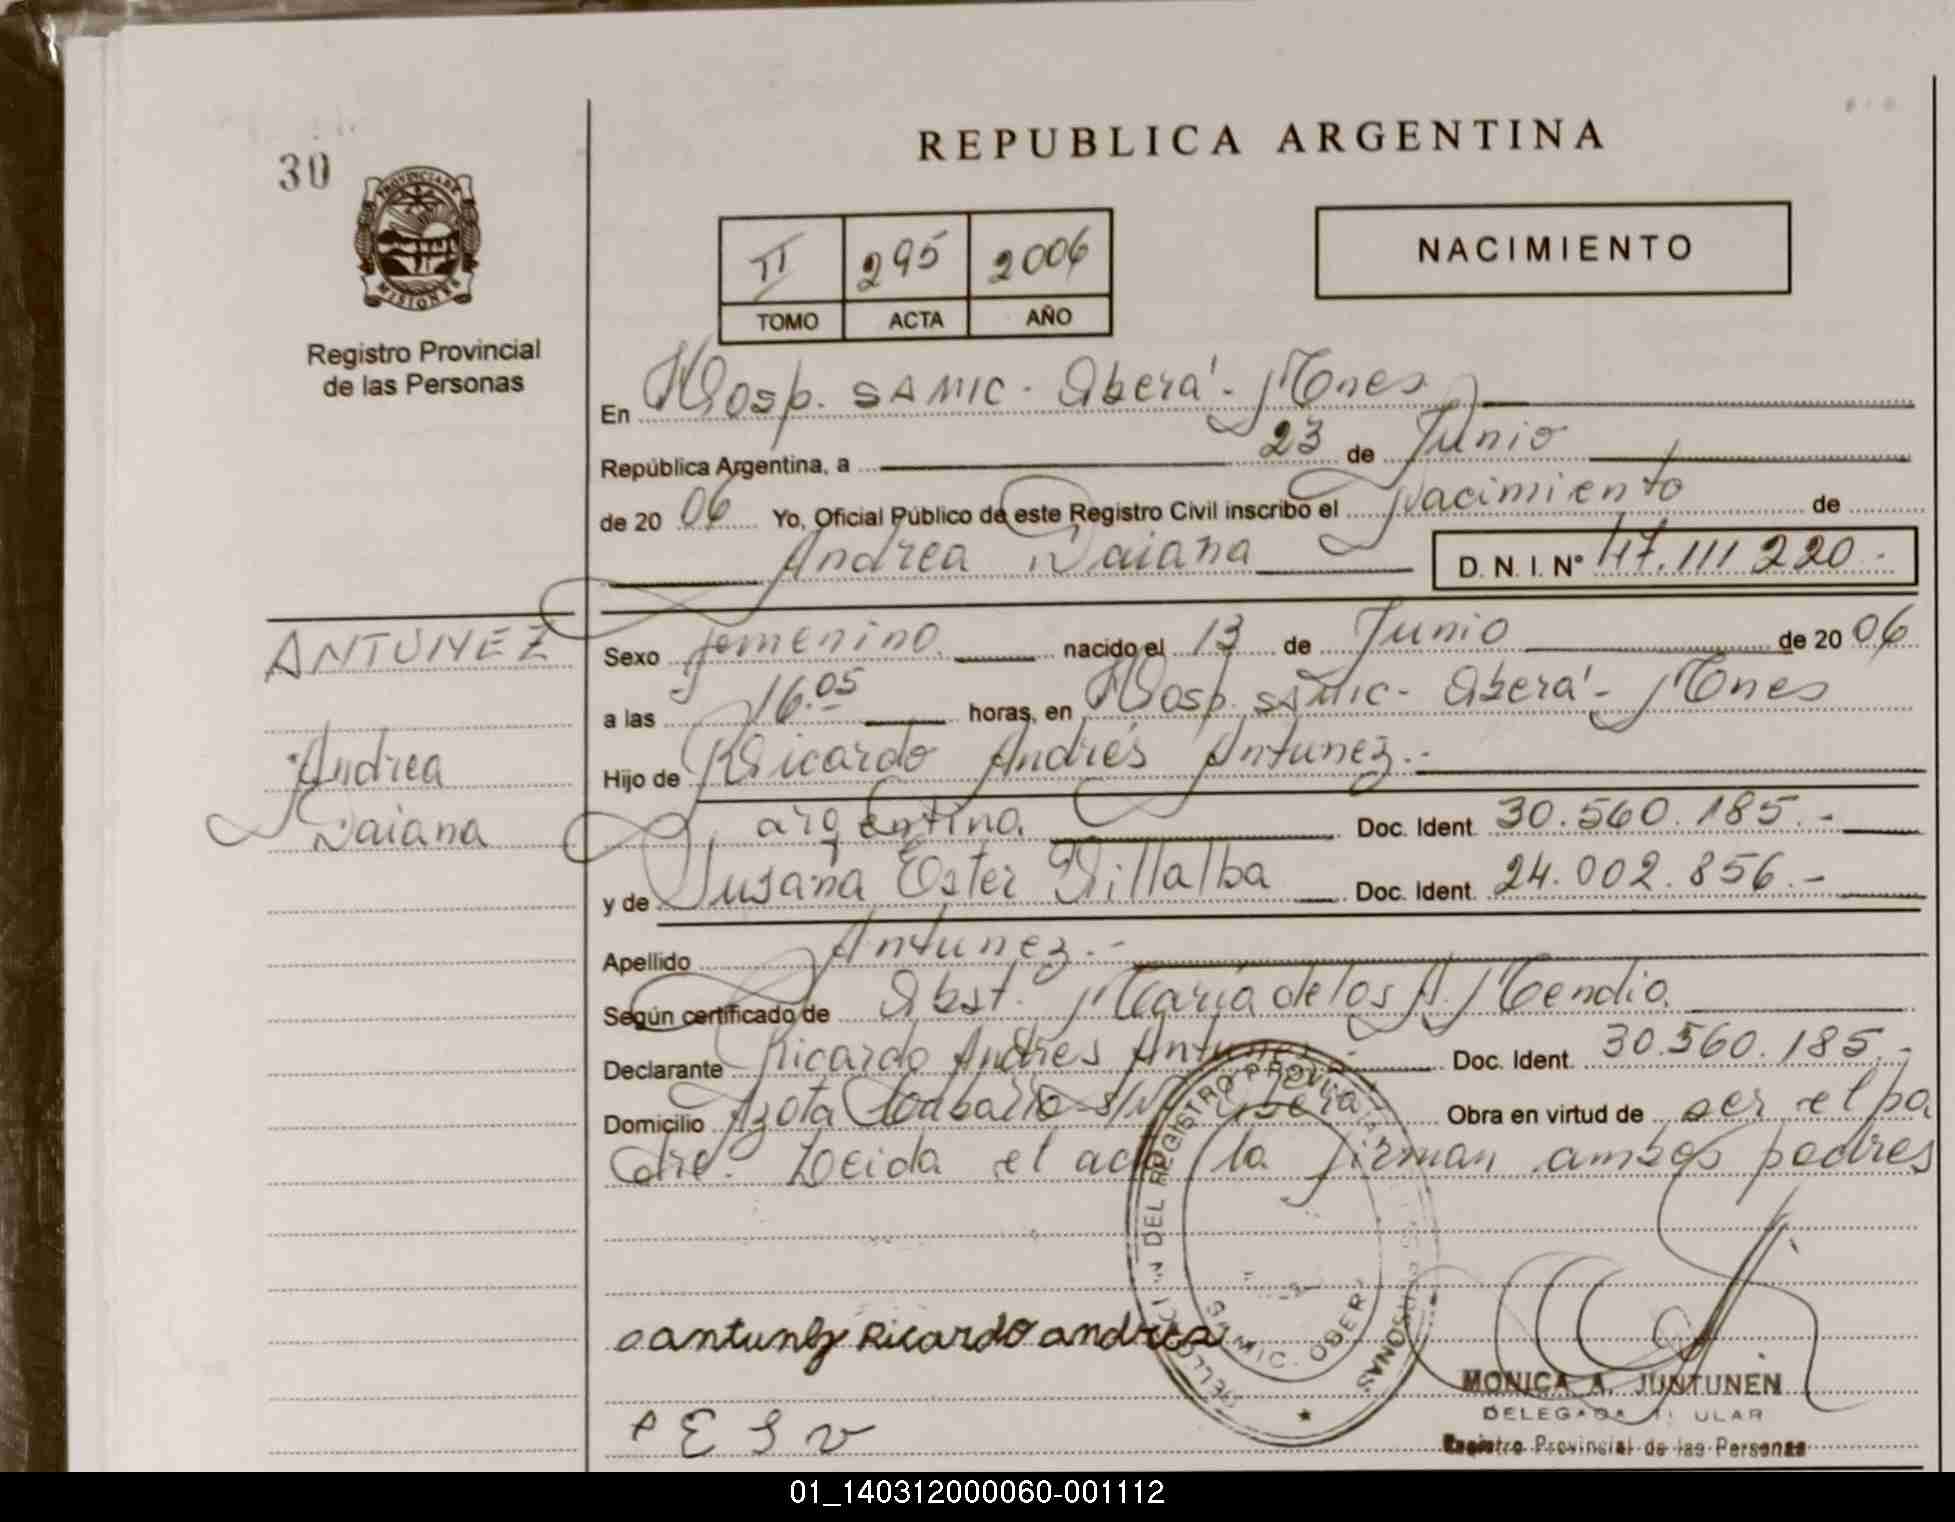 REPUBLICA ARGENTINA
30
PROVINCIA DE MISIONES
Registro Provincial
de las Personas
II 295 2006
TOMO ACTA AÑO
NACIMIENTO
En Hosp. SAMIC - Oberá - Mnes
República Argentina, a 23 de Junio
de 2006 Yo, Oficial Público de este Registro Civil inscribo el nacimiento de
Andrea Daiana D. N. I. Nº 47.111.220.-
ANTUNEZ
Andrea
Daiana
Sexo femenino nacido el 13 de Junio de 2006
a las 16.05 horas, en Hosp. SAMIC - Oberá - Mnes
Hijo de Ricardo Andrés Antunez.-
argentina Doc. Ident. 30.560.185.-
y de Susana Ester Villalba Doc. Ident. 24.002.856.-
Apellido Antunez.-
Según certificado de Obst. María de los A. Mendio
Declarante Ricardo Andres Antunez - Doc. Ident. 30.560.185.-
Domicilio S/Nº Oberá Obra en virtud de ser el pa
dre. Leida el acta la firman ambos padres
antunez Ricardo andres
MONICA A. JUNTUNEN
DELEGADA TITULAR
Registro Provincial de las Personas
01_140312000060-001112